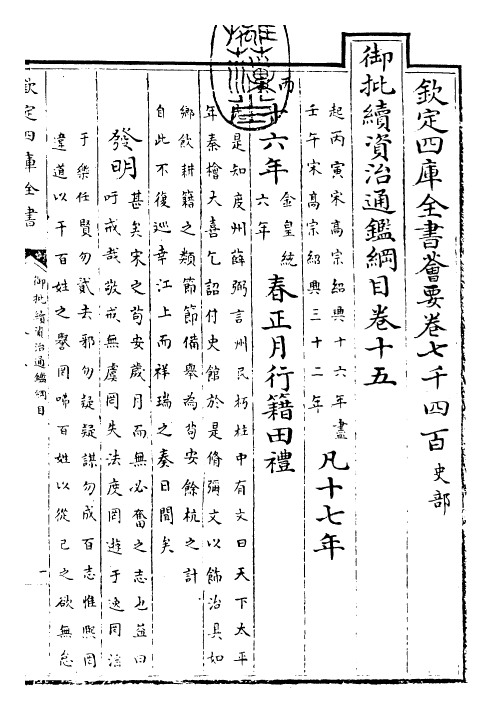 欽定四庫全書薈要卷七千四百史部
御批續資治通鑑綱目卷十五
起丙寅宋高宗紹興十六年盡
壬午宋高宗紹興三十二年
凡十七年
丙
十六年金皇統六年春正月行籍田禮
是知虔州薛弼言州民朽柱中有文曰天下太平
年秦檜大喜乞詔付史館於是脩彌文以飾治具如
鄉飲耕籍之類節節備舉為苟安餘杭之計
自此不復巡幸江上而祥瑞之奏日聞矣
發明甚矣宋之苟安歲月而無必奮之志也益曰
吁戒哉儆戒無虞罔失法度罔遊于逸罔淫
于樂任賢勿貳去邪勿疑疑謀勿成百志惟熙罔
違道以干百姓之譽罔咈百姓以從己之欲無怠
欽定四庫全書
御批續資治通鑑綱目
一